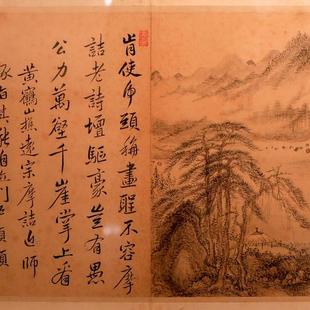 肯使虎頭稱畫聖不容摩
詰老詩壇驅豪豈有愚
公力萬壑千崖掌上看
黃鶴山樵遠宗摩詰近師
承旨其能自